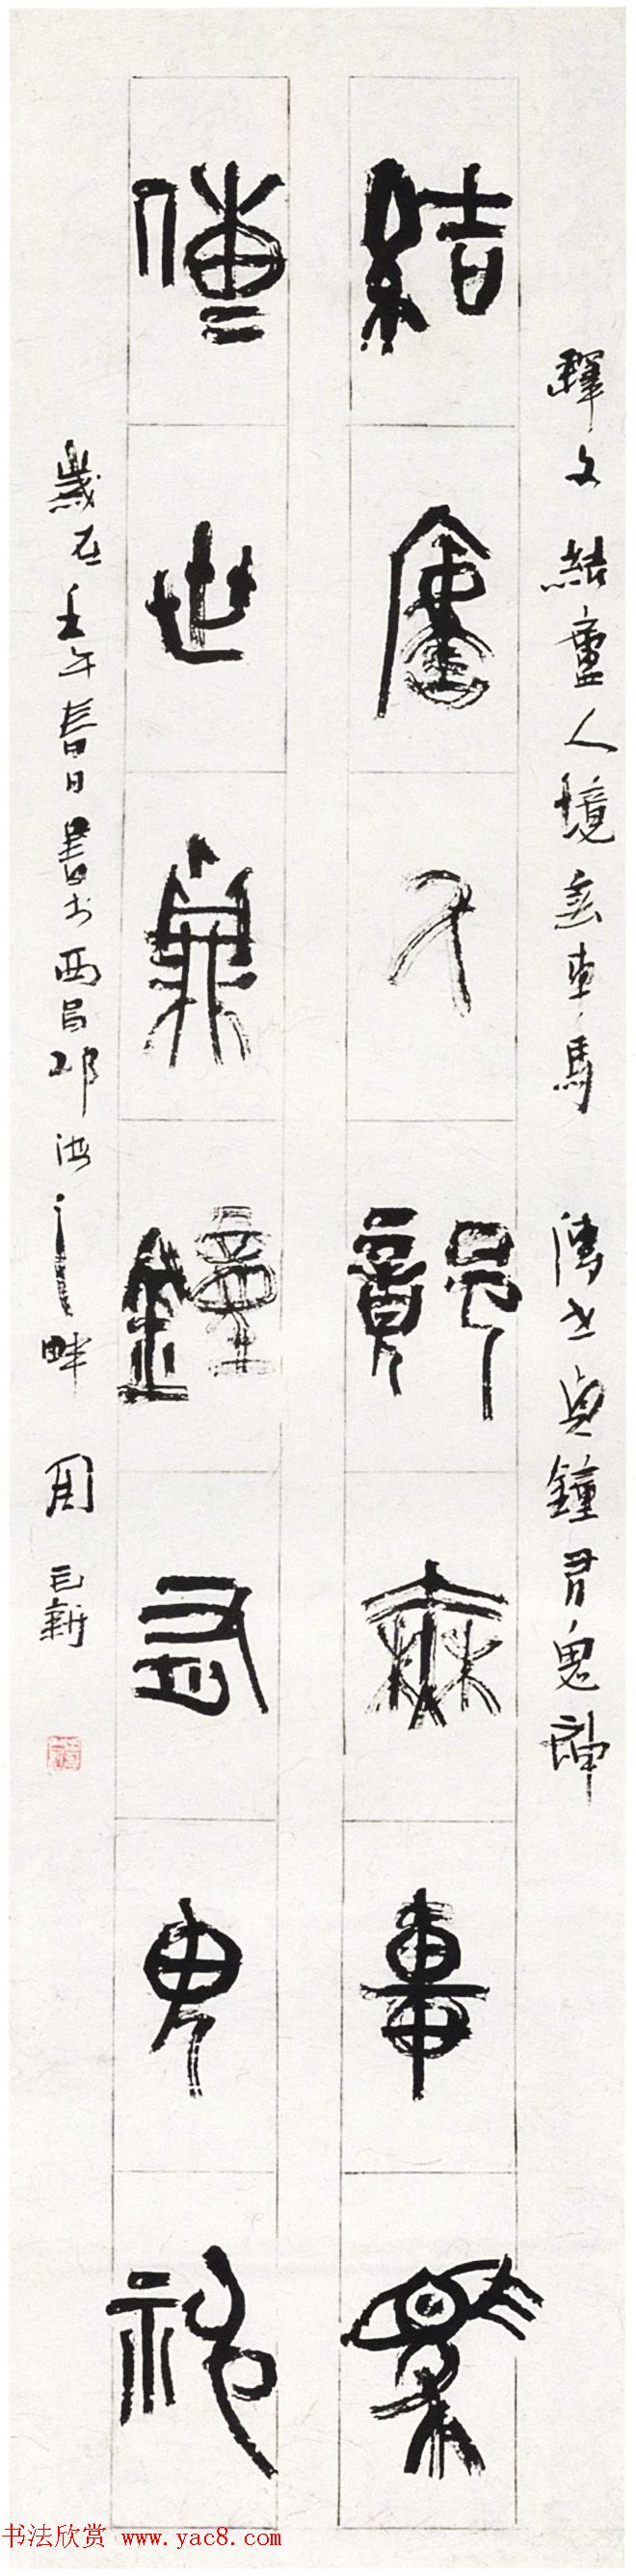 釋文 結廬人境無車馬 傳世貞鐘有鬼神
結廬人境無車馬
傳世貞鐘有鬼神
歲在壬午春日書於西昌邛海之畔 周
书法欣赏 www.yac8.com